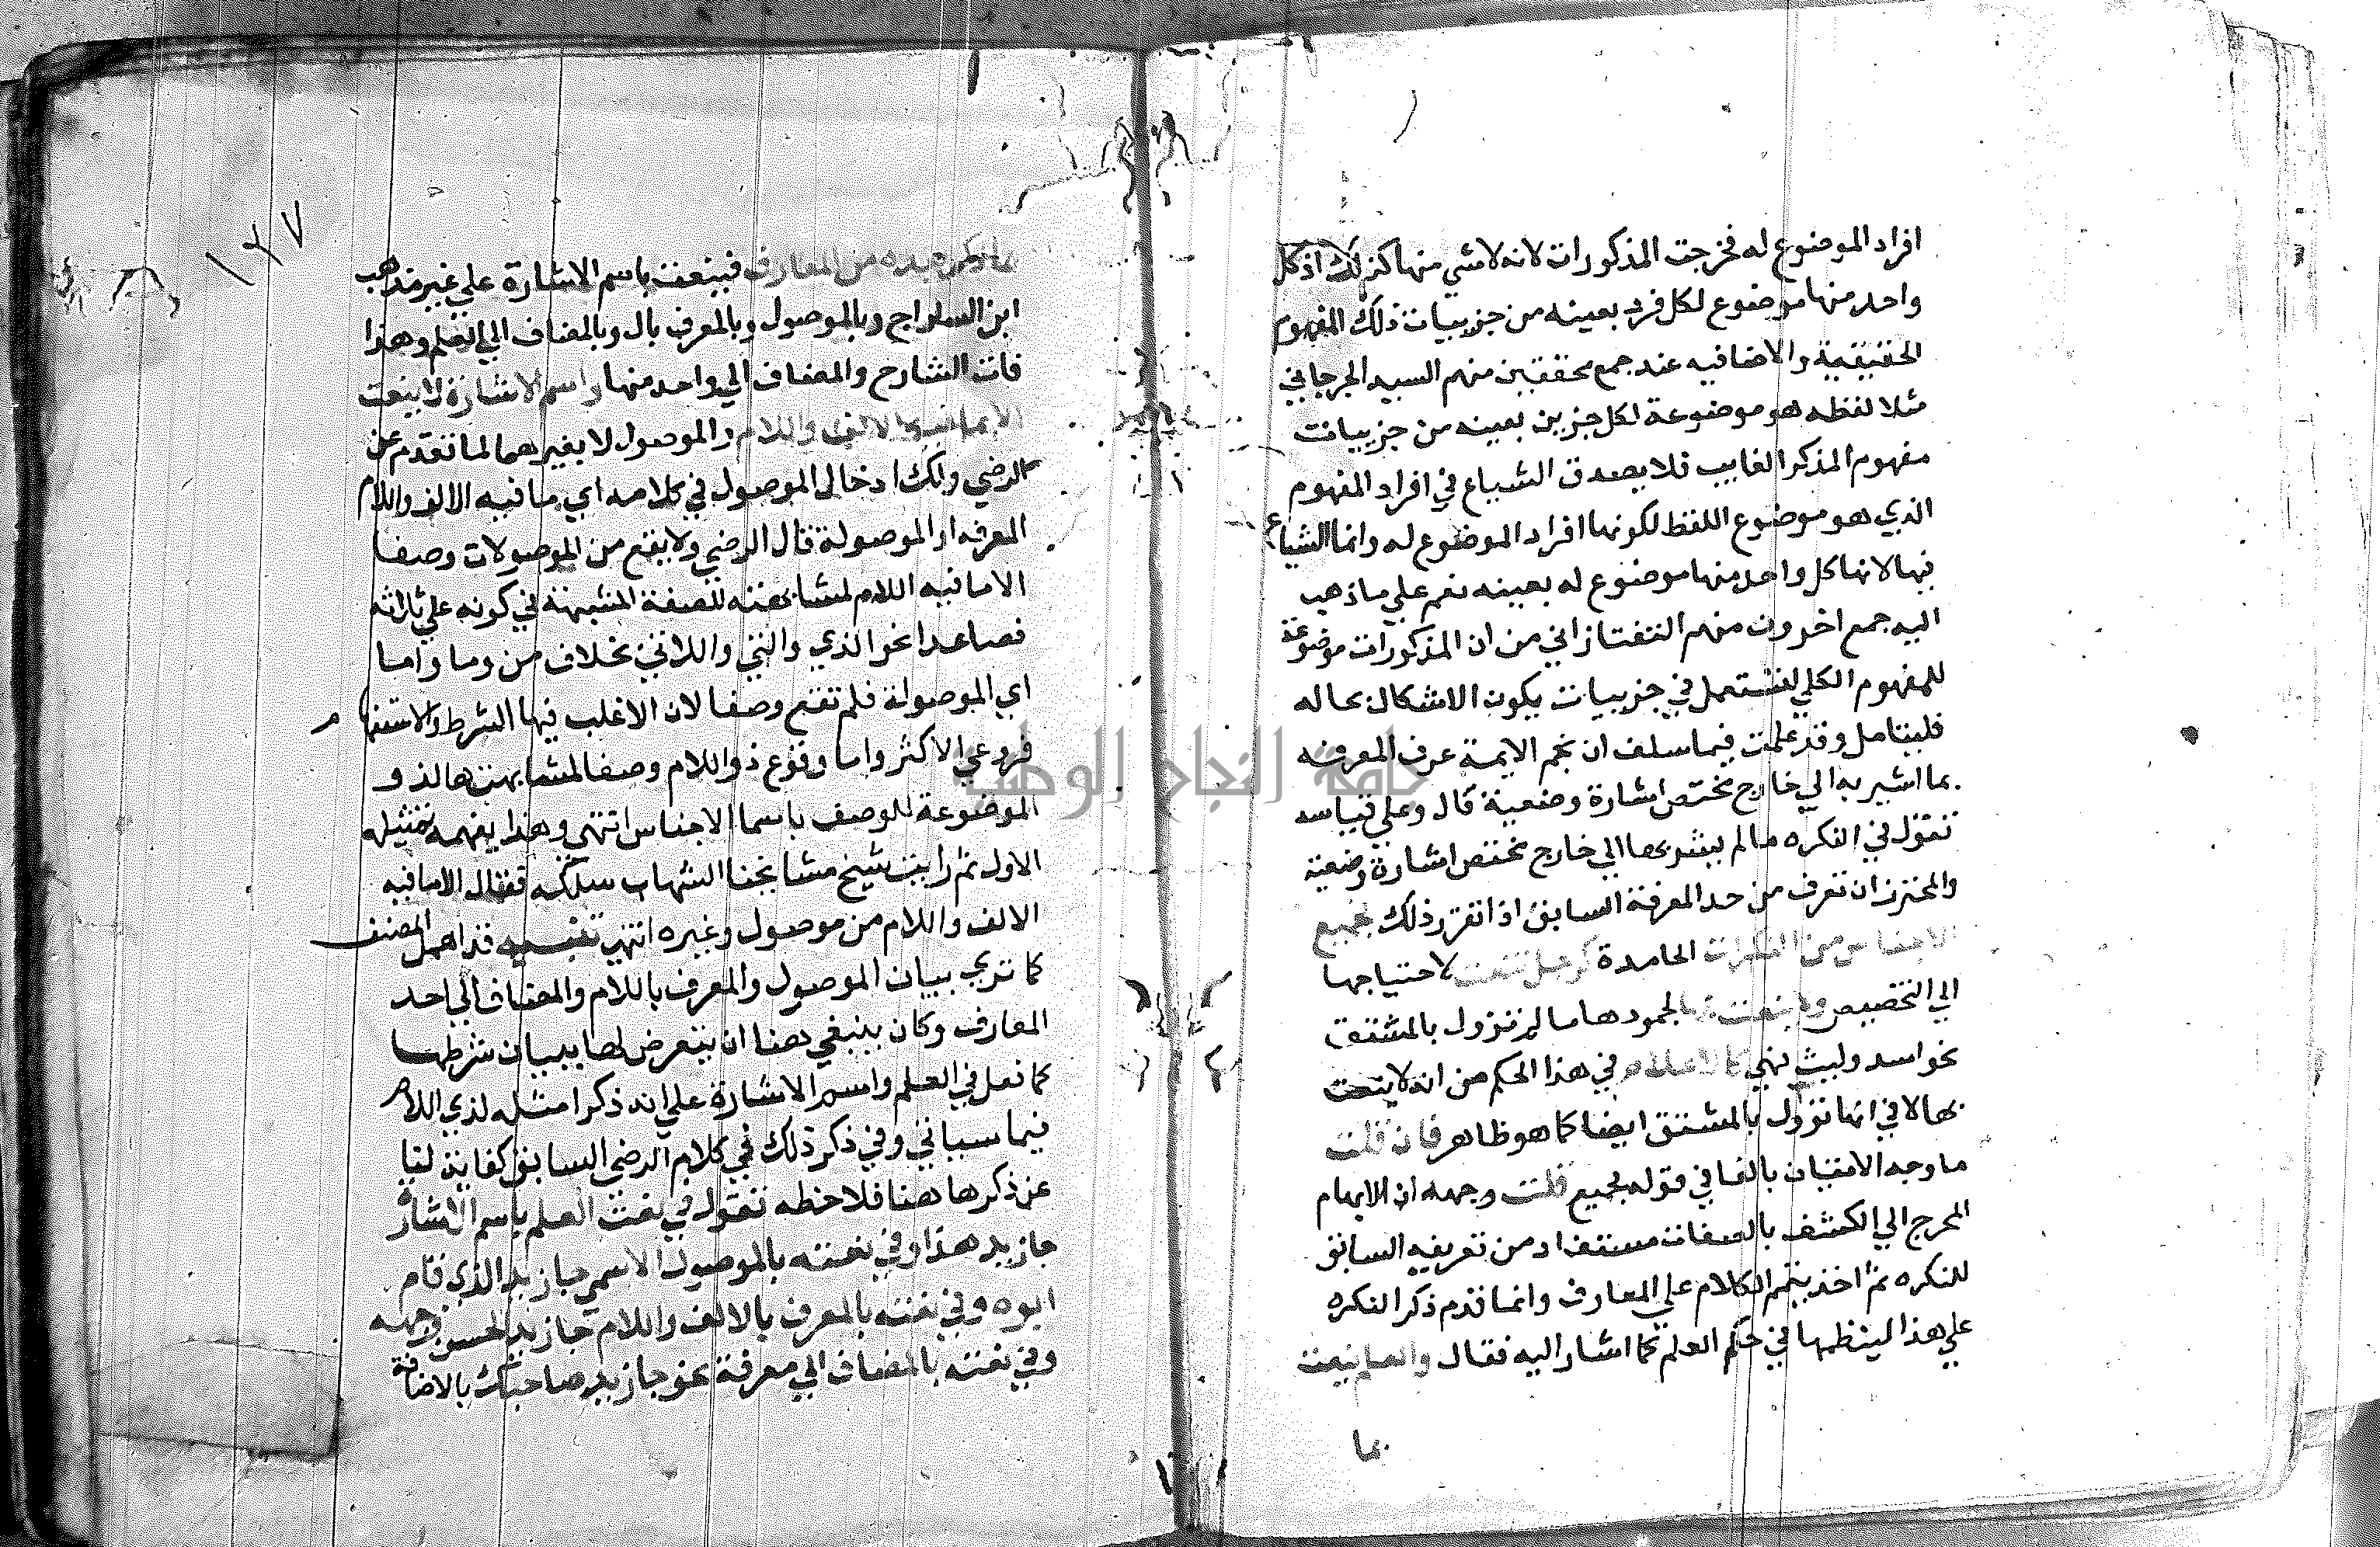 افراد الموضوع له فخرجت المذكورات لانه لا شي منها كذلك اذ كل
واحد منها موضوع لكل فرد بعينه من جزييات ذلك المفهوم
الحقيقية والاضافيه عند جمع محققين منهم السيد الجرجاني
مثلا لفظه هو موضوعة لكل جزين بعينه من جزييات
مفهوم المذكر الغايب فلا يصدق الشياع في افراد المفهوم
الذي هو موضوع اللفظ لكونها افراد الموضوع له وانما الشياع
فيها لانها كل واحد منها موضوع له بعينه نعم علي ما ذهب
اليه جمع اخرون منهم التفتازاني من ان المذكورات موضوعة
للمفهوم الكلي لتستعمل في جزييات يكون الاشكال بحاله
فليتامل وقد علمت فيما سلف ان نجم الايمة عرف المعرفه
بما اشير به الي خارج مختص اشارة وضعية قال وعلي قياسه
نقول في النكره ما لم يشر بها الي خارج مختص اشارة وضعية
والمحترزان تعرف من حد المعرفة السابق اذا تقرر ذلك فجميع
الاجناس من النكرات الجامدة كرجل تنعت لاحتياجها
الي التخصيص ولا ينعت بها لجمودها ما لم تزول بالمشتق
نحو اسد وليث فهي كالاعلام في هذا الحكم من انه لا ينعت
بها لا في انها تزول بالمشتق ايضا كما هو ظاهر فان قلت
ما وجه الاتيان بالفا في قوله فجميع قلت وجهه ان الابهام
المحرج الي الكشف بالصفات مستفاد من تعريفه السابق
للنكره ثم اخذ يتمم الكلام علي المعارف وانما قدم ذكر النكره
علي هذا لينظمها في حكم العلم كما اشار اليه فقال والعلم ينعت
بما
١٢٧
بما ذكر بعده من المعارف فينعت باسم الاشارة علي غير مذهب
ابن السراج وبالموصول وبالمعرف بال وبالمضاف الي العلم وهذا
فات الشارح والمضاف الي واحد منها واسم الاشارة لا ينعت
الا بما فيه الالف واللام والموصول لا بغيرهما لما تقدم عن
الرضي ولك ادخال الموصول في كلامه اي ما فيه الالف واللام
المعرفه او الموصولة قال الرضي ولا يقع من الموصولات وصفا
الا ما فيه اللام لمشابهته للصفة المشبهة في كونه علي ثلاثه
فصاعدا نحو الذي والتي واللاتي بخلاف من وما واما
اي الموصولة فلم تقع وصفا لان الاغلب فيها الشرط والاستفهام
فروعي الاكثر واما وقوع ذو اللام وصفا لمشابهتها لذو
الموضوعة للوصف باسما الاجناس انتهي وهذا يفهمه تمثيله
الاول ثم رايت شيخ مشايخنا الشهاب سلكه فقال الا ما فيه
الالف واللام من موصول وغيره انتهي تنبيه قد اهمل المصنف
كما تري بيان الموصول والمعرف باللام والمضاف الي احد
المعارف وكان ينبغي هنا ان يتعرض لها ببيان شرطها
كما فعل في العلم واسم الاشارة علي انه ذكر امثله لذي اللام
فيما سياتي وفي ذكر ذلك في كلام الرضي السابق كفاية لنا
عن ذكرها هنا فلاحظه تقول في نعت العلم باسم الاشارة
جا زيد هذا وفي نعته بالموصول الاسمي جا زيد الذي قام
ابوه وفي نعته بالمعرف بالالف واللام جا زيد الحسن وجهه
وفي نعته بالمضاف الي معرفة نحو جا زيد صاحبك بالاضافة
جامعة النجاح الوطنية